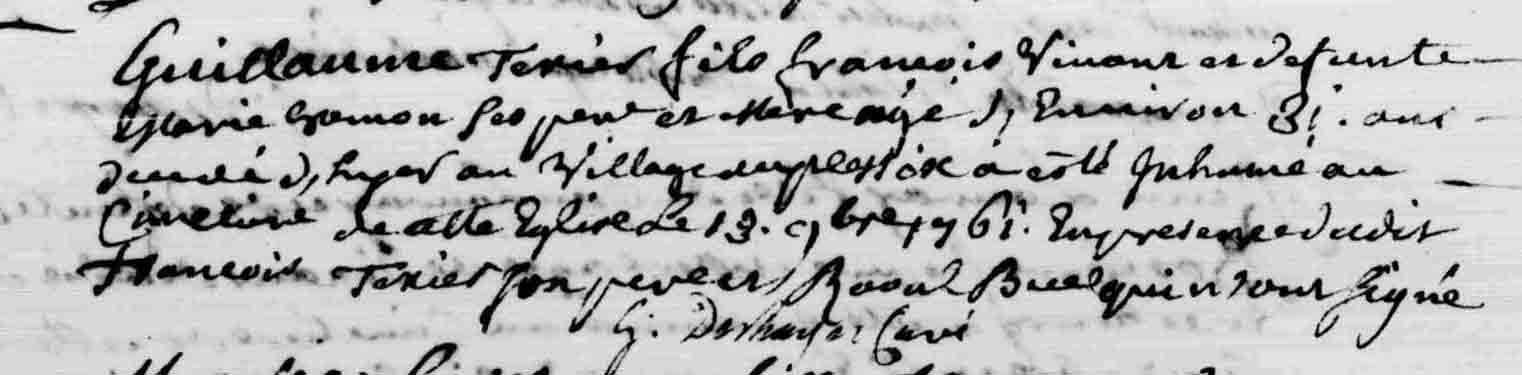 Guillaume Texier fils françois Vivant et defunte
Marie hamon ses pere et Mere agé d'Environ 31. ans
decedé d'hyer au Village du plessix a côté Inhumé au
Cimetiere de cette Eglise Le 13. 9bre 1761. En presence dudit
François Texier son pere et Raoul Buel qui n'ont signé
G. Deshayes Curé